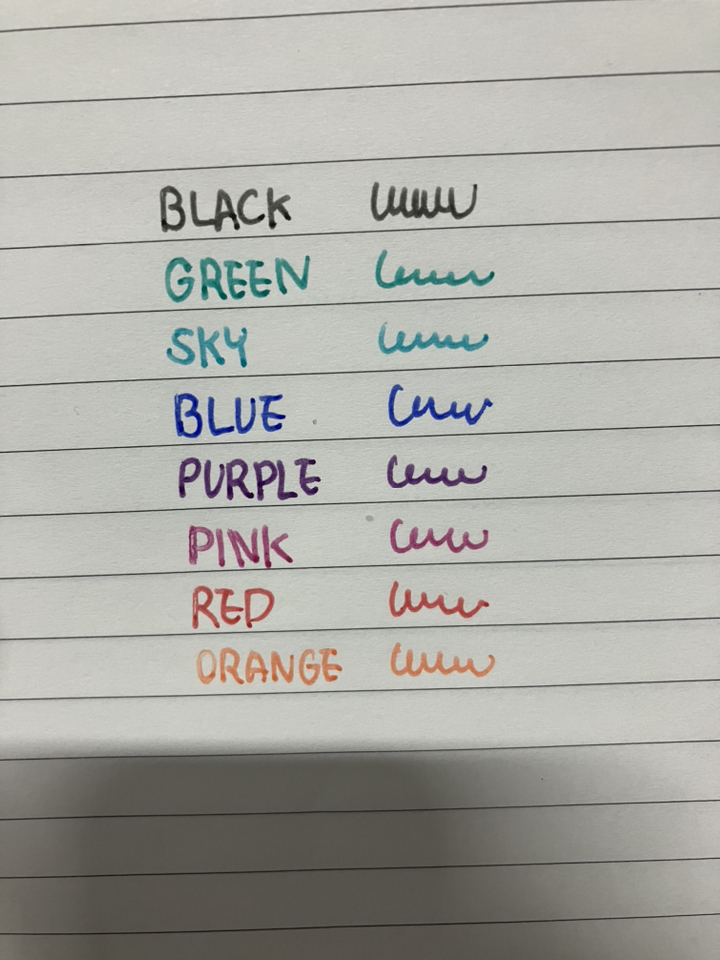 BLACK
GREEN
SKY
BLUE
PURPLE
PINK
RED
ORANGE